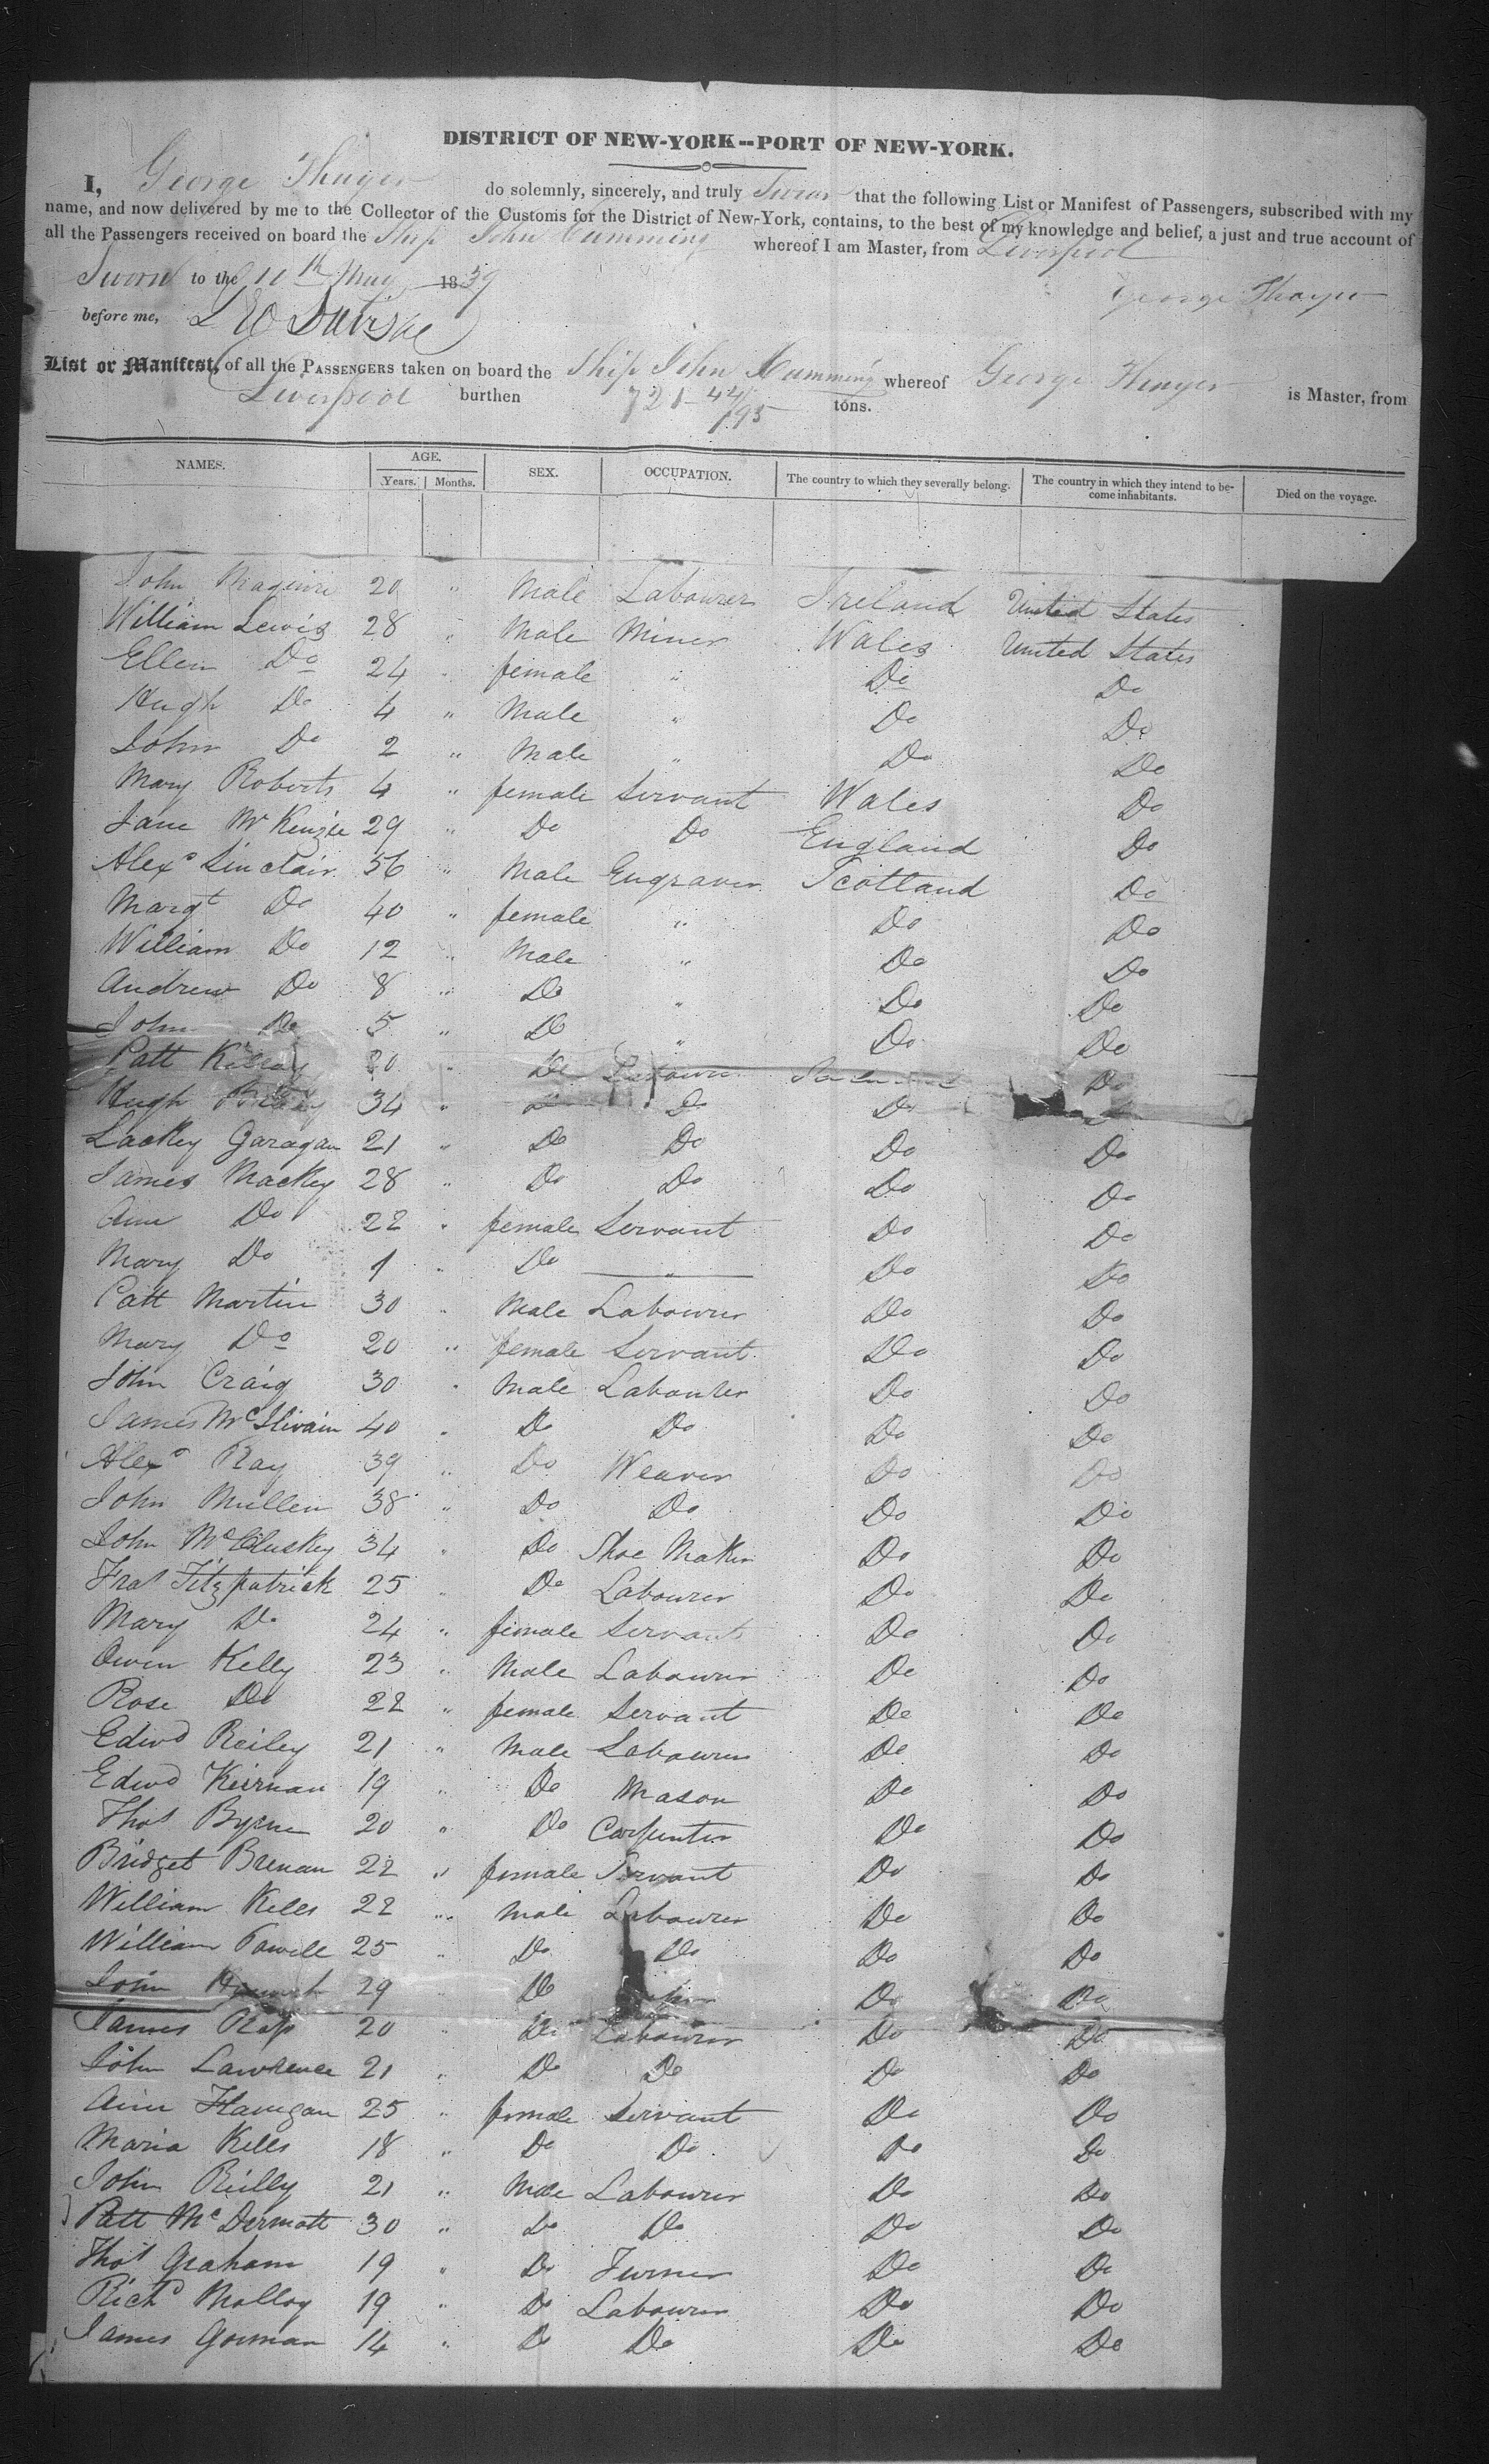 DISTRICT OF NEW-YORK--PORT OF NEW-YORK.
I, George Thayer do solemnly, sincerely, and truly Swear that the following List or Manifest of Passengers, subscribed with my
name, and now delivered by me to the Collector of the Customs for the District of New-York, contains, to the best of my knowledge and belief, a just and true account of
all the Passengers received on board the Ship John Cumming whereof I am Master, from Liverpool
Sworn to the May 1839 George Thayer
before me,
List or Manifest, of all the PASSENGERS taken on board the Ship John Cumming whereof George Thayer is Master, from
Liverpool burthen 721-44/95 tons.
NAMES. AGE. Years. Months. SEX. OCCUPATION. The country to which they severally belong. The country in which they intend to become inhabitants. Died on the voyage.
John Maguire 20 " Male Labourer Ireland United States
William Lewis 28 " Male Miner Wales United States
Ellen Do 24 " female " Do Do
Hugh Do 4 " Male " Do Do
John Do 2 " Male " Do Do
Mary Roberts 4 " female Servant Wales Do
Jane McKenzie 29 " Do Do England Do
Alexr Sinclair 36 " Male Engraver Scotland Do
Margt Do 40 " female " Do Do
William Do 12 " Male " Do Do
Andrew Do 8 " Do " Do Do
John Do 5 " Do " Do Do
Patt 20 " Do Labourer Do
Hugh 34 " Do Do Do
Lackey Garagan 21 " Do Do Do Do
James Mackey 28 " Do Do Do Do
Ann Do 22 " female Servant Do Do
Mary Do 1 " Do " Do Do
Patt Martin 30 " Male Labourer Do Do
Mary Do 20 " female Servant Do Do
John Craig 30 " Male Labourer Do Do
James McIlwain 40 " Do Do Do Do
Alexr Ray 39 " Do Weaver Do Do
John Mullen 38 " Do Do Do Do
John McCluskey 34 " Do Shoe Maker Do Do
Fras Fitzpatrick 25 " Do Labourer Do Do
Mary Do 24 " female Servant Do Do
Owen Kelly 23 " Male Labourer Do Do
Rose Do 22 " female Servant Do Do
Edwd Reiley 21 " Male Labourer Do Do
Edwd Keirnan 19 " Do Mason Do Do
Thos Byrne 20 " Do Carpenter Do Do
Bridget Brenan 22 " female Servant Do Do
William Kells 22 " Male Labourer Do Do
William Powell 25 " Do Do Do Do
John 29 " Do Do Do
James Ross 20 " Do Labourer Do Do
John Lawrence 21 " Do Do Do Do
Ann Flanigan 25 " female Servant Do Do
Maria Kells 18 " Do Do Do Do
John Reilly 21 " Male Labourer Do Do
Patt McDermott 30 " Do Do Do Do
Thos Graham 19 " Do Turner Do Do
Richd Molloy 19 " Do Labourer Do Do
James Gorman 14 " Do Do Do Do